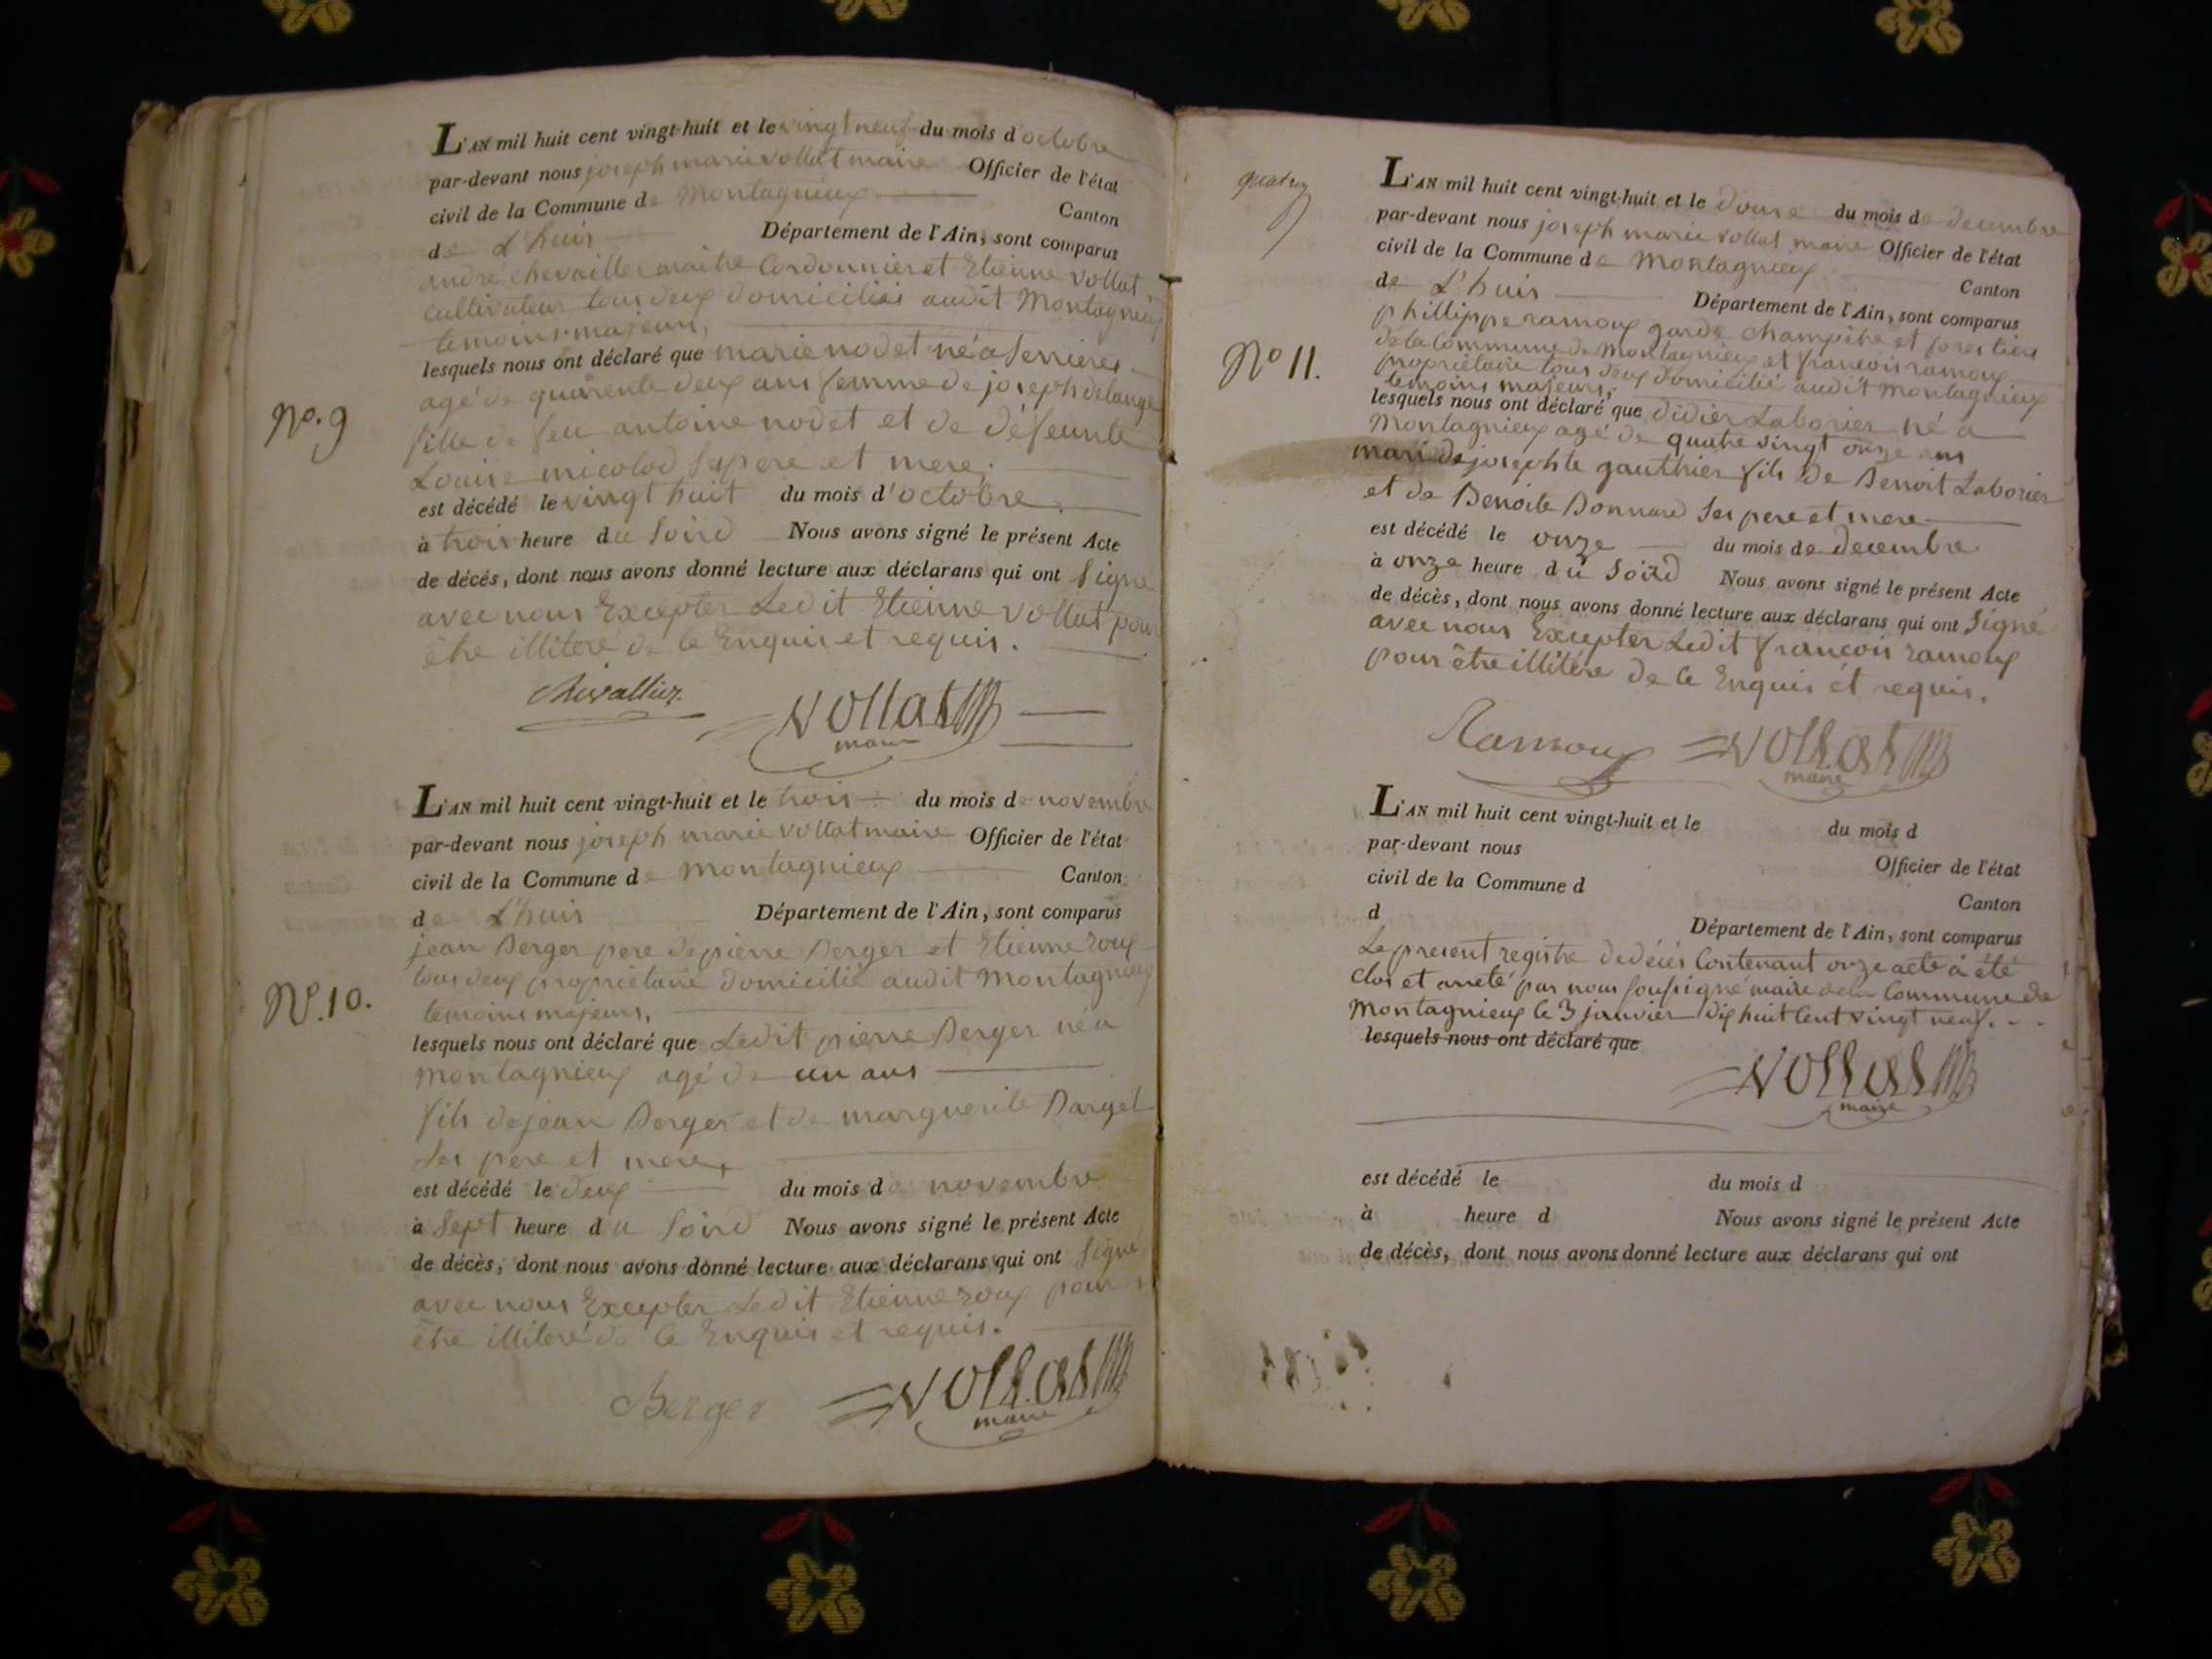 L'AN mil huit cent vingt-huit et le vingt neuf du mois d'octobre
par-devant nous joseph marie vollat maire Officier de l'état
civil de la Commune de Montagnieux Canton
de L'huis Département de l'Ain, sont comparus
andre chevallier maitre Cordonnier et Etienne vollat
cultivateur tous deux domiciliés audit Montagnieux
temoins majeurs,
lesquels nous ont déclaré que marie nodet né a Serrieres
No. 9
agé de quarente deux ans femme de joseph delange
fille de feu antoine nodet et de défeunte
Louise micolod Ses pere et mere;
est décédé le vingt huit du mois d'octobre
à trois heure du Soird Nous avons signé le présent Acte
de décès, dont nous avons donné lecture aux déclarans qui ont Signé
avec nous Excepter Ledit Etienne vollat pour
être illiteré de ce Enquis et requis.
Chevallier
vollat
maire
L'AN mil huit cent vingt-huit et le trois du mois de novembre
par-devant nous joseph marie vollat maire Officier de l'état
civil de la Commune de Montagnieux Canton
de L'huis Département de l'Ain, sont comparus
jean Berger pere de pierre Berger et Etienne roux
tous deux propriétaire domicilié audit Montagnieux
No. 10.
temoins majeurs,
lesquels nous ont déclaré que Ledit pierre Berger né a
Montagnieux agé de un ans
fils de jean Berger et de marguerite Barget
Ses pere et mere,
est décédé le deux du mois de novembre
à Sept heure du Soird Nous avons signé le présent Acte
de décès, dont nous avons donné lecture aux déclarans qui ont Signé
avec nous Excepter Ledit Etienne roux pour
être illiteré de ce Enquis et requis.
Berger
vollat
maire
L'AN mil huit cent vingt-huit et le douse du mois de decembre
par-devant nous joseph marie vollat maire Officier de l'état
civil de la Commune de Montagnieux
Canton
de L'huis Département de l'Ain, sont comparus
phillippe ramoux garde champêtre et forestiers
de la Commune de Montagnieux et francois ramoux
No 11.
propriétaire tous deux domicilié audit Montagnieux
temoins majeurs,
lesquels nous ont déclaré que didier Laborier né a
Montagnieux agé de quatre vingt onze ans
mari de josephte gauthier fils de Benoit Laborier
et de Benoite Bonnard Ses pere et mere
est décédé le onze du mois de decembre
à onze heure du Soird Nous avons signé le présent Acte
de décès, dont nous avons donné lecture aux déclarans qui ont Signé
avec nous Excepter Ledit francois ramoux
pour être illitéré de ce Enquis et requis.
Ramoux
vollat
maire
L'AN mil huit cent vingt-huit et le du mois d
par-devant nous Officier de l'état
civil de la Commune d Canton
d Département de l'Ain, sont comparus
Le present registre de décés Contenant onze acte à été
Clos et arreté par nous soussigné maire de la Commune de
Montagnieux le 3 janvier dix huit Cent vingt neuf.
lesquels nous ont déclaré que
vollat
maire
est décédé le du mois d
à heure d Nous avons signé le présent Acte
de décès, dont nous avons donné lecture aux déclarans qui ont